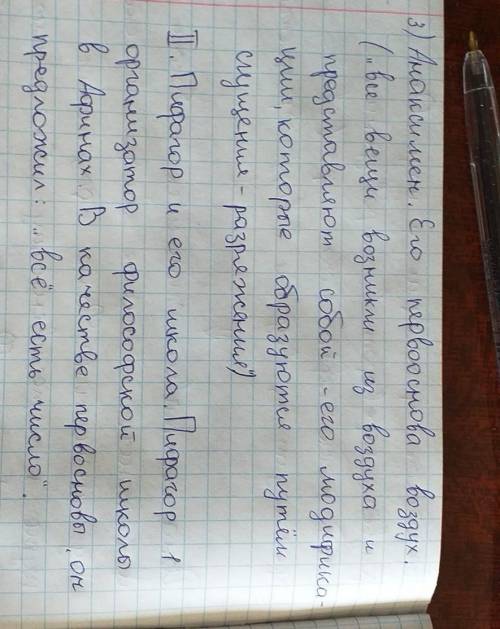 3) Анаксимен. Его первооснова воздух.
(„все вещи возникли из воздуха и
представляют собой - его модифика-
ции, которые образуются путём
сгущения - разряжения")
II. Пифагор и его школа. Пифагор 1
организатор философской школы
в Афинах. В качестве первосновы, он
предложил: „всё есть число".